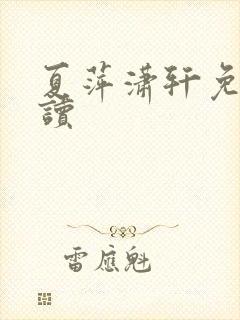 夏萍潇轩免
讀
雷應魁